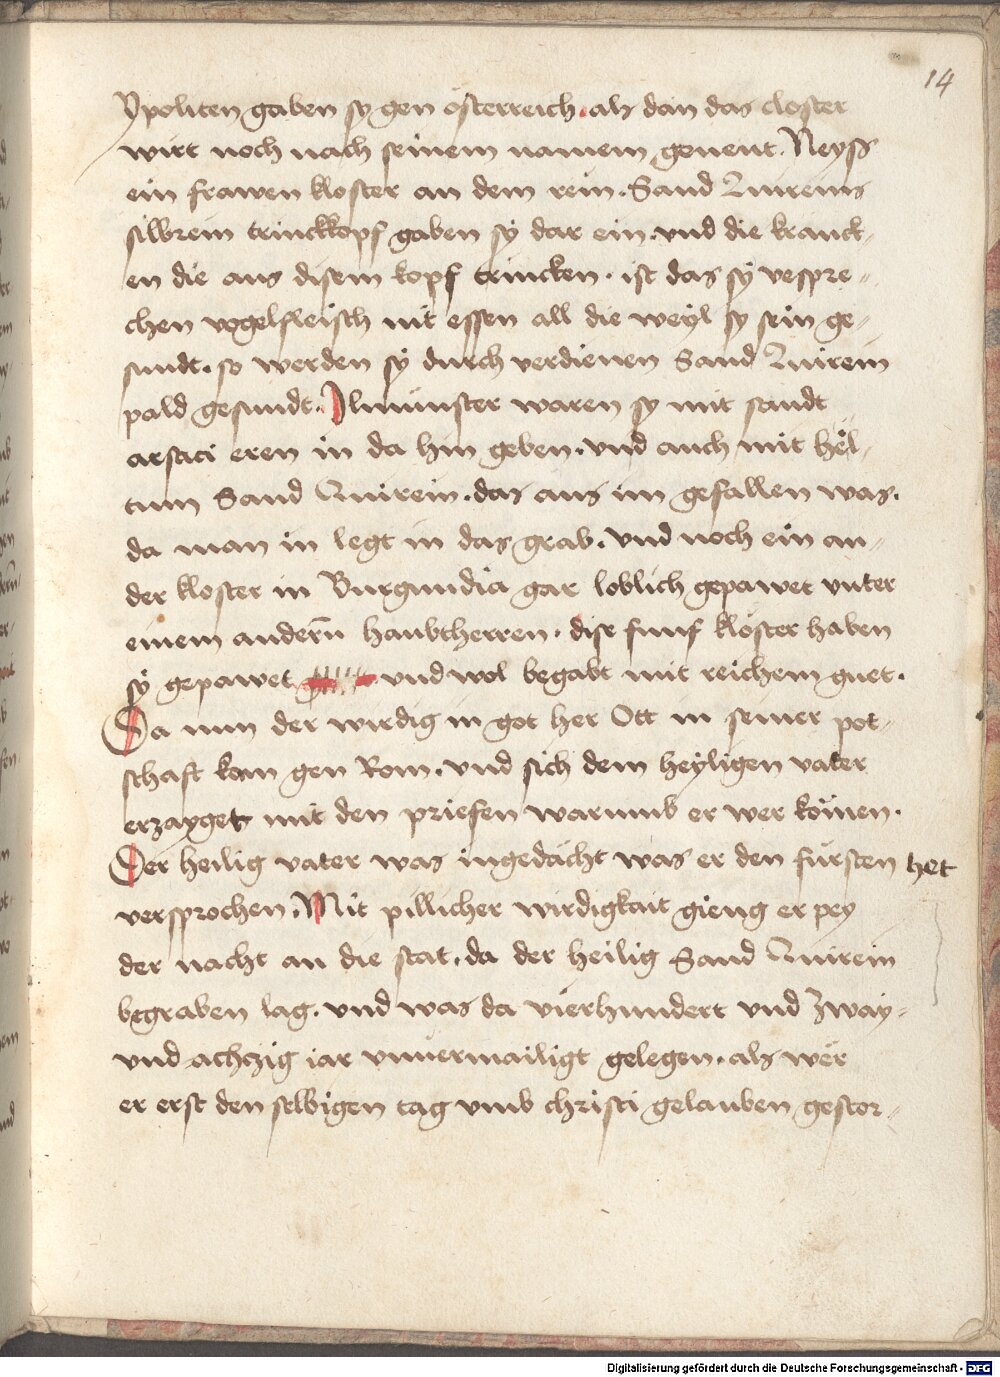 14
Ypoliten gaben sy gen österreich. als dan das closter
wirt noch nach seinem namem genent. Neyss
ein frawen kloster an dem rein. Sand Quireins
silbrein trinckkopf gaben sÿ dar ein. vnd die kranck-
en die aus disem kopf trincken. ist das sÿ verspre-
chen vogelfleisch nit essen all die weÿl sy sein ge-
sundt. so werden sÿ durch verdienen Sand Quirein
pald gesundt. Jlmünster waren sy mit sandt
arsaci eren in da hin geben. vnd auch mit heÿl-
tum Sand Quirein. das aus im gefallen was.
da man in legt in das grab. vnd noch ein an-
der kloster in Burgundia gar loblich gepawet vnter
einem andern̄ haubtherren. dise funf klöster haben
sÿ gepawet vnd wol begabt mit reichem guet.
Da nun der wirdig in got her Ott in seiner pot-
schaft kam gen Rom. vnd sich dem heyligen vater
erzayget mit den priefen warumb er wer kömen.
Der heilig vater was ingedächt was er den fürsten het
versprochen. Mit pillicher wirdigkait gieng er pey
der nacht an die stat. da der heilig Sand Quirein
begraben lag. vnd was da vierhundert vnd zway-
vnd achzig iar vnuermailigt gelegen. als wër
er erst den selbigen tag vmb christi gelauben gestor-
Digitalisierung gefördert durch die Deutsche Forschungsgemeinschaft - DFG